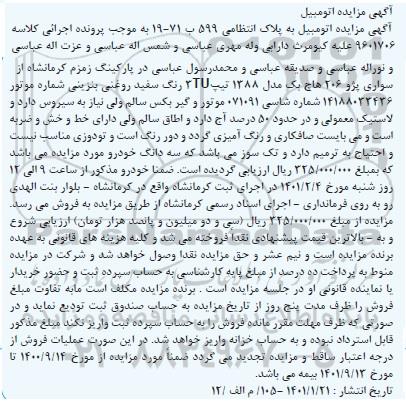 آگهی مزایده اتومبیل
آگهی مزایده اتومبیل به پلاک انتظامی ۵۹۹ ب ۷۱-۱۹ به موجب پرونده اجرائی کلاسه
۹۶۰۱۷۰۶ علیه کیومرث دارابی وله مهری عباسی و شمس اله عباسی و عزت اله عباسی
و نوراله عباسی و صدیقه عباسی و محمدرسول عباسی در پارکینگ زمزم کرمانشاه از
سواری پژو ۲۰۶ هاچ بک مدل ۱۳۸۸ تیپ۳TU رنگ سفید روغنی بنزینی شماره موتور
۱۴۱۸۸۰۳۳۴۳۶ شماره شاسی ۰۷۱۰۹۱ موتور و گیر بکس سالم ولی نیاز به سرویس دارد و
لاستیک معمولی و در حدود ۵۰ درصد آج دارد و اطاق سالم ولی دارای خط و خش و ضربه
است و می بایست صافکاری و رنگ آمیزی گردد و دور رنگ است و تودوزی مناسب نیست
و احتیاج به ترمیم دارد و تک سوز می باشد که سه دانگ خودرو مورد مزایده می باشد
که بمبلغ ۳۲۵/۰۰۰/۰۰۰ ریال ارزیابی گردیده است. ضمنا خودرو مذکور از ساعت ۹ الی ۱۲
روز شنبه مورخ ۱۴۰۱/۲/۴ در اجرای ثبت کرمانشاه واقع در کرمانشاه - بلوار بنت الهدی
رو به روی فرمانداری - اجرای اسناد رسمی کرمانشاه از طریق مزایده به فروش می رسد.
مزایده از مبلغ ۳۲۵/۰۰۰/۰۰۰ ریال (سی و دو میلیون و پانصد هزار تومان) ارزیابی شروع
و به - بالاترین قیمت پیشنهادی نقدا فروخته می شد و کلیه هزینه های قانونی به عهده
برنده مزایده است و نیم عشر و حق مزایده نقدا وصول خواهد شد و شرکت در مزایده
منوط به پرداخت ده درصد از مبلغ پایه کارشناسی به حساب سپرده ثبت و حضور خریدار
یا نماینده قانونی او در جلسه مزایده است . برنده مزایده مکلف است مابه تفاوت مبلغ
فروش را ظرف مدت پنج روز از تاریخ مزایده به حساب صندوق ثبت تودیع نماید و در
صورتی که ظرف مهلت مقرر مانده فروش را به حساب سپرده ثبت واریز نکند مبلغ مذکور
قابل استرداد نبوده و به حساب خزانه واریز خواهد شد. در این صورت عملیات فروش از
درجه اعتبار ساقط و مزایده تجدید می گردد ضمنا مورد مزایده از مورخ ۱۴۰۰/۹/۱۴ تا
مورخ ۱۴۰۱/۹/۱۳ بیمه می باشد.
تاریخ انتشار : ۱۴۰۱/۱/۲۱ -۱۰۵/ م الف /۱۲